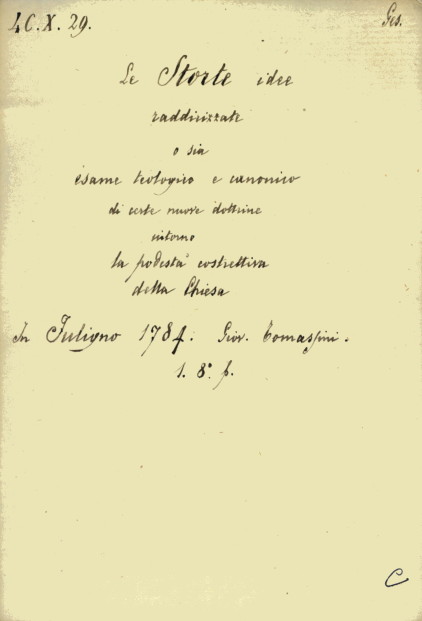 4C.X.29.
Ges.
Le Storte idee
raddirizzate
o sia
esame teologico e canonico
di certe nuove dottrine
intorno
la podestà costrettiva
della Chiesa
In Fuligno 1784. Giov. Tomassini.
1. 8°. p.
C